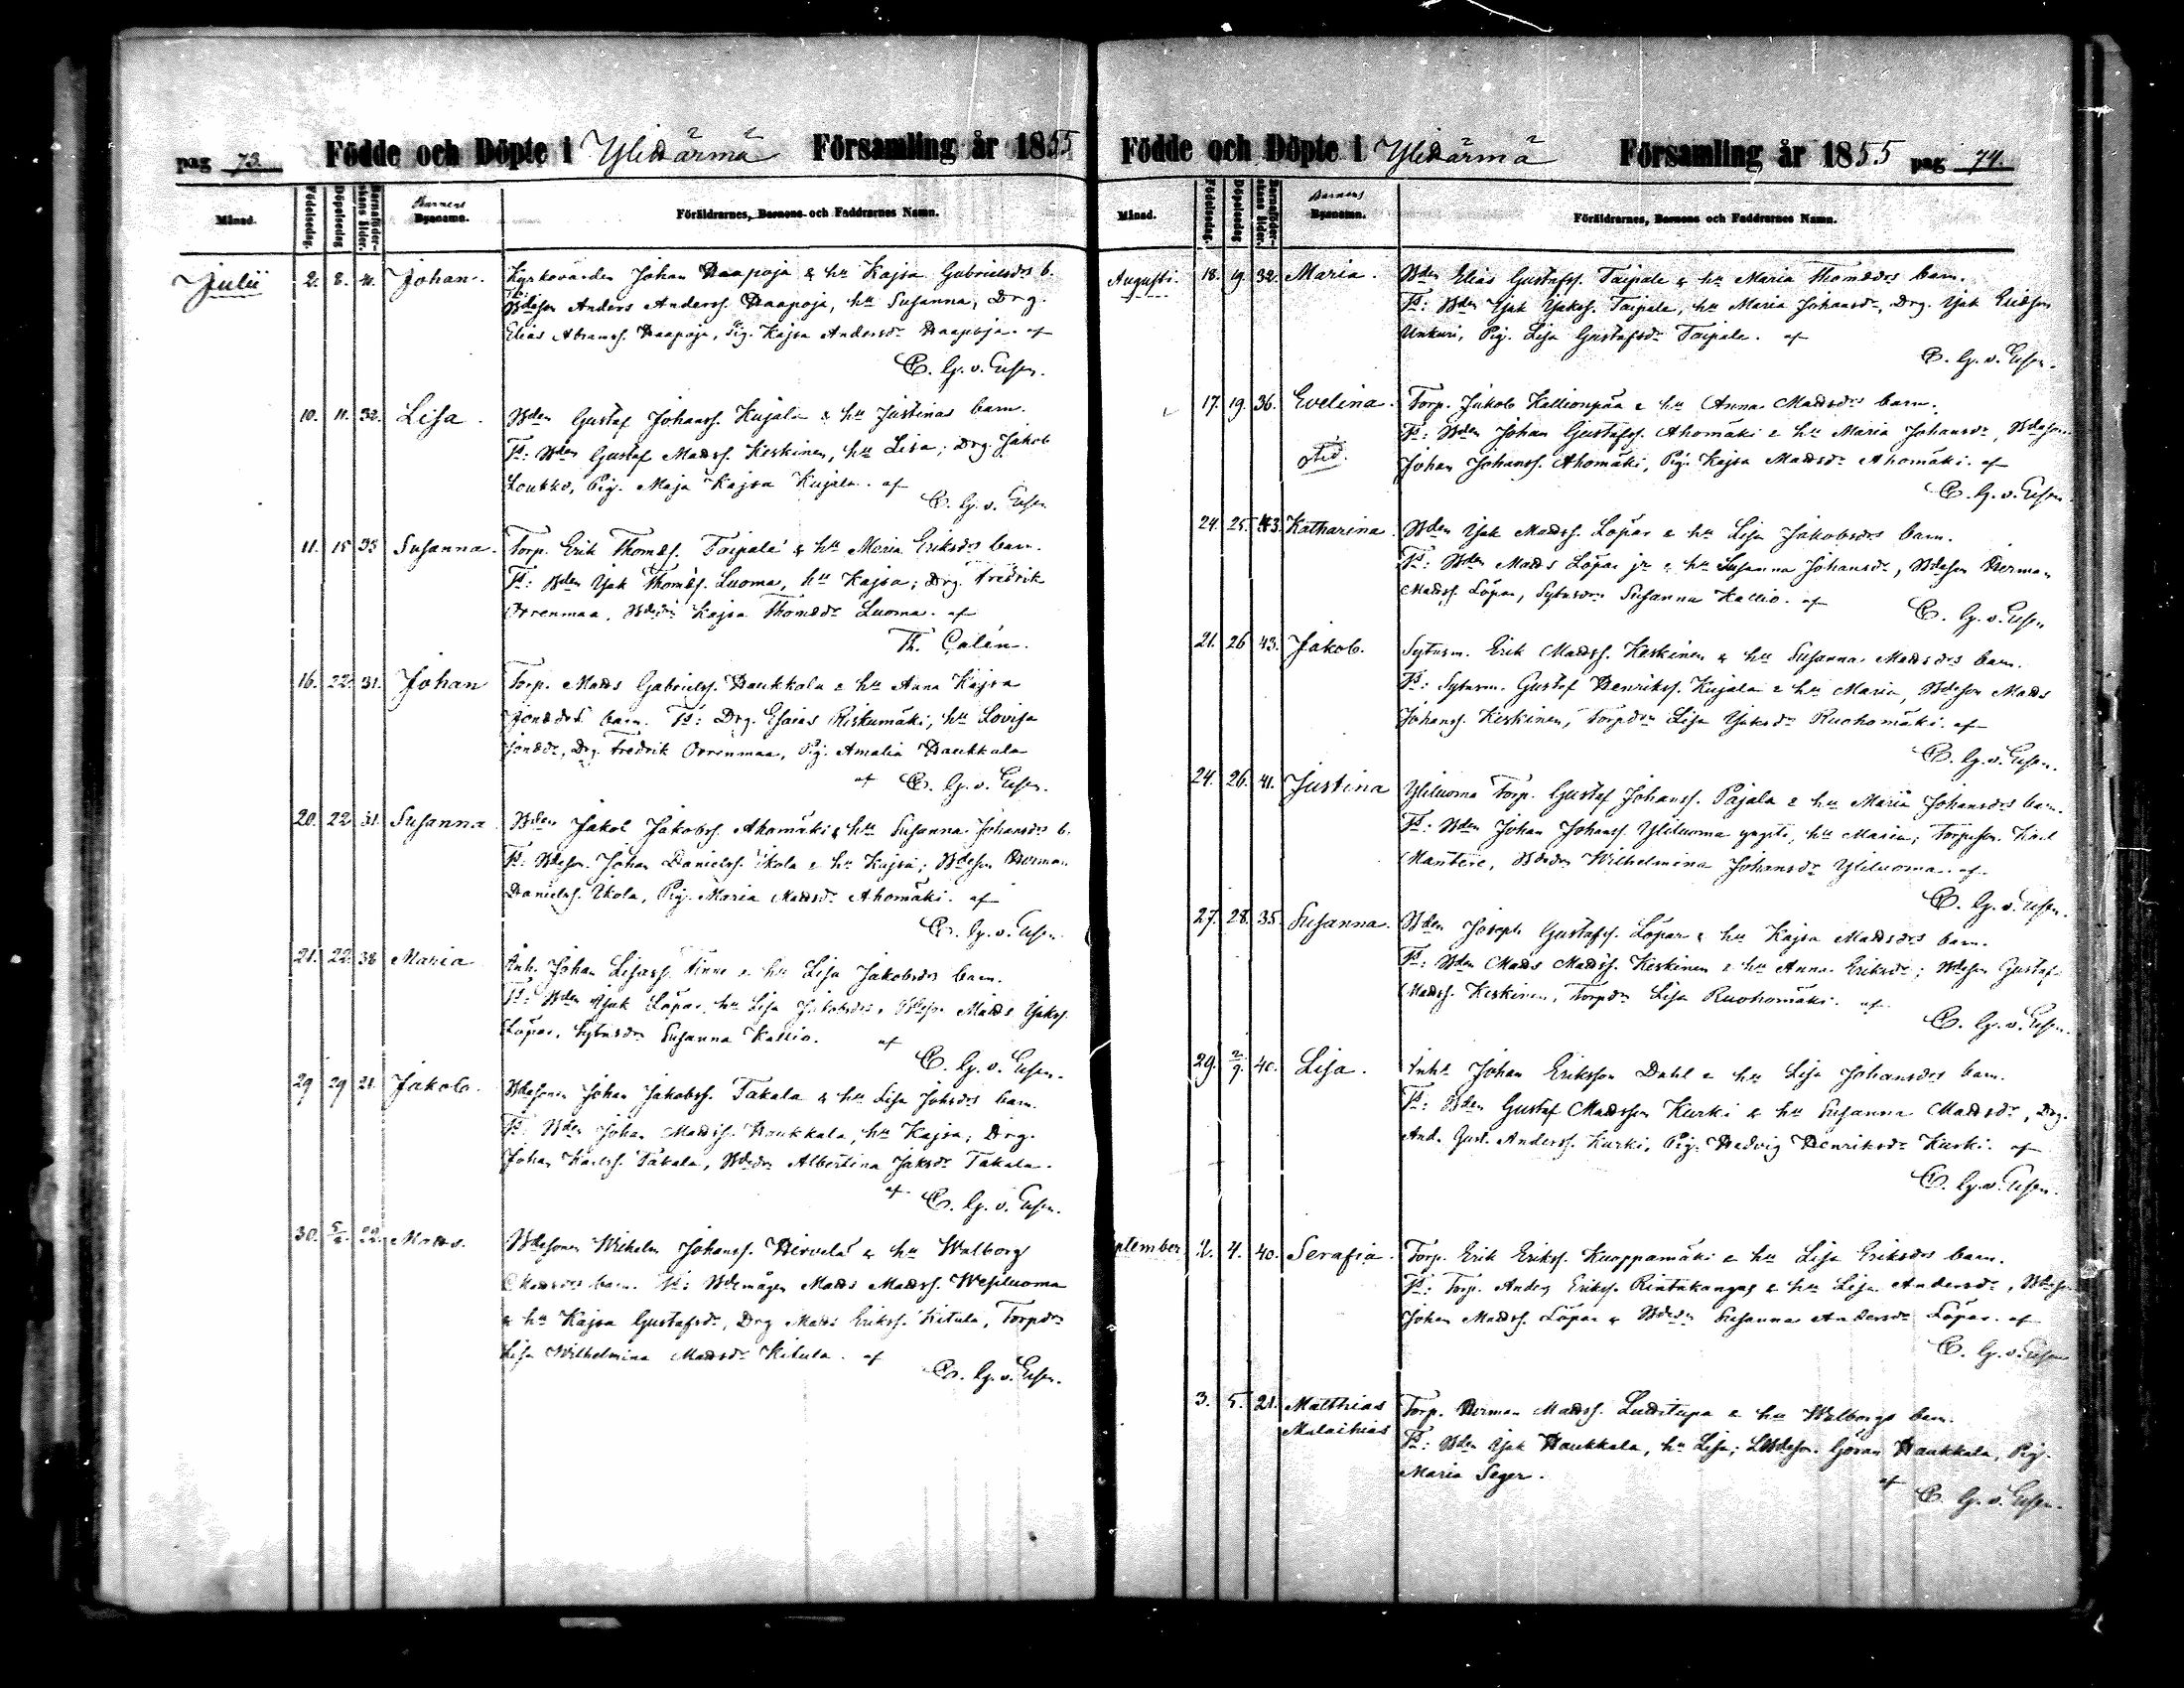 pag 73. Födde och Döpte i Ylihärmä Församling år 1855
Månad. Födelsedag. Döpelsedag Barnaföderskans ålder. Barnens Bynamn. Föräldrarnes, Barnens och Faddrarnes Namn.
Julii 2. 8. Johan. Kyrkovärden Johan Haapoja & hu Kajsa Gabrielsdrs b.
Bdeson Anders Anderss. Haapoja, hu Susanna, Drg.
Elias Abramss. Haapoja, Pig. Kajsa Andersdr Haapoja. af
C. G. v. Essen.
10. 11. 32. Lisa. Bden Gustaf Johanss. Kujala & hu Justinas barn.
Ts: Bden Gustaf Matss. Keskinen, hu Lisa; Drg. Jakob
Loukko, Pig. Maja Kajsa Kujala. af
C. G. v. Essen
11. 15 35 Susanna. Torp. Erik Thomæs. Taipale & hu Maria Eriksdrs barn.
Ts: Bden Isak Thomæs. Luoma, hu Kajsa; Drg. Fredrik
Orrenmaa, Bdedr Kajsa Thomædr Luoma. af
Th. Calén.
16. 22. 31. Johan Torp. Matts Gabrielss. Haukkala & hu Anna Kajsa
Jonædrs barn. Ts: Drg. Esaias Riskumäki, hu Lovisa
Jonædr, Drg. Fredrik Orrenmaa, Pig. Amalia Haukkala
af C. G. v. Essen.
20. 22 31. Susanna Bden Jakob Jakobss. Ahomäki & hu Susanna Johansdrs b.
Ts: Bdeson Johan Danielss. Ikola & hu Kajsa; Bdeson Herman
Danielss. Ikola, Pig. Maria Mattsdr Ahomäki. af
C. G. v. Essen.
21. 22. 38 Maria Inh. Johan Lisass. Finne & hu Lisa Jakobsdrs barn.
Ts: Bden Isak Löpar, hu Lisa Jakobsdr, Bdeson Matts Isakss.
Löpar, Sytnsdr Susanna Kallio. af
C. G. v. Essen.
29 29 21. Jakob. Bdesonen Johan Jakobss. Takala & hu Lisa Johsdrs barn.
Ts: Bden Johan Mattss. Haukkala, hu Kajsa; Drg.
Johan Karlss. Takala, Bdedr Albertina Jaksdr Takala.
af C. G. v. Essen.
30. 5/8 22. Matts. Bdesonen Wilhelm Johanss. Hirvelä & hu Walborg
Mattsdrs barn. Ts: Bdemågen Matts Mattss. Wesiluoma
& hu Kajsa Gustafsdr, Drg Matts Erikss. Kitula, Torpdr
Lisa Wilhelmina Mattsdr Kitula. af
C. G. v. Essen.
Födde och Döpte i Ylihärmä Församling år 1855 pag 74.
Månad. Födelsedag. Döpelsedag Barnaföderskans ålder. Barnens Bynamn. Föräldrarnes, Barnens och Faddrarnes Namn.
Augusti. 18. 19. 32. Maria. Bden Elias Gustafss. Taipale & hu Maria Thomædrs barn.
Ts: Bden Isak Isakss. Taipale, hu Maria Johansdr, Drg. Isak Eliæson
Unkuri, Pig. Lisa Gustafsdr Taipale. af
C. G. v. Essen.
17. 19. 36. Evelina. Torp. Jakob Kallionpää & hu Anna Mattsdrs barn.
Ts: Bden Johan Gustafss. Ahomäki & hu Maria Johansdr, Bdeson
Johan Johanss. Ahomäki, Pig. Kajsa Mattsdr Ahomäki. af
C. G. v. Essen.
24. 25. 43. Katharina. Bden Isak Mattss. Löpar & hu Lisa Jakobsdrs barn.
Ts: Bden Matts Löpar jr & hu Susanna Johansdr, Bdeson Herman
Mattss. Löpar, Sytnsdr Susanna Kallio. af
C. G. v. Essen
21. 26 43. Jakob. Sytnsm. Erik Mattss. Keskinen & hu Susanna Mattsdrs barn.
Ts: Sytnsm. Gustaf Henrikss. Kujala & hu Maria, Bdeson Matts
Johanss. Keskinen, Torpdr Lisa Isaksdr Ruohomäki. af
C. G. v. Essen.
24. 26. 41. Justina Yliluoma Torp. Gustaf Johanss. Pajala & hu Maria Johansdrs barn.
Ts: Bden Johan Johanss. Yliluoma yngste, hu Maria; Torpeson Karl
Mantere, Bdedr Wilhelmina Johansdr Yliluoma. af
C. G. v. Essen.
27. 28. 35. Susanna. Bden Joseph Gustafss. Löpar & hu Kajsa Mattsdrs barn.
Ts: Bden Matts Mattss. Keskinen & hu Anna Eriksdr; Bdeson Gustaf
Mattss. Keskinen, Torpdr Lisa Ruohomäki. af
C. G. v. Essen.
29. 2/9. 40. Lisa. Inhs Johan Eriksson Dahl & hu Lisa Johansdrs barn.
Ts: Bden Gustaf Mattsson Kurki & hu Susanna Mattsdr, Drg.
And. Gust. Anderss. Kurki, Pig. Hedvig Henriksdr Kurki. af
C. G. v. Essen.
ptember 2. 4. 40. Serafia. Torp. Erik Erikss. Kuoppamäki & hu Lisa Eriksdrs barn.
Ts: Torp. Anders Erikss. Rintakangas & hu Lisa Andersdr, Bdeson
Johan Mattss. Löpar & Bdedr Susanna Andersdr Löpar. af
C. G. v. Essen
3. 5. 21. Matthias Torp. Herman Mattss. Luhtitupa & hu Walborgs barn.
Malachias Ts: Bden Isak Haukkala, hu Lisa; Bdeson Göran Haukkala, Pig.
Maria Seger.
af
C. G. v. Essen.